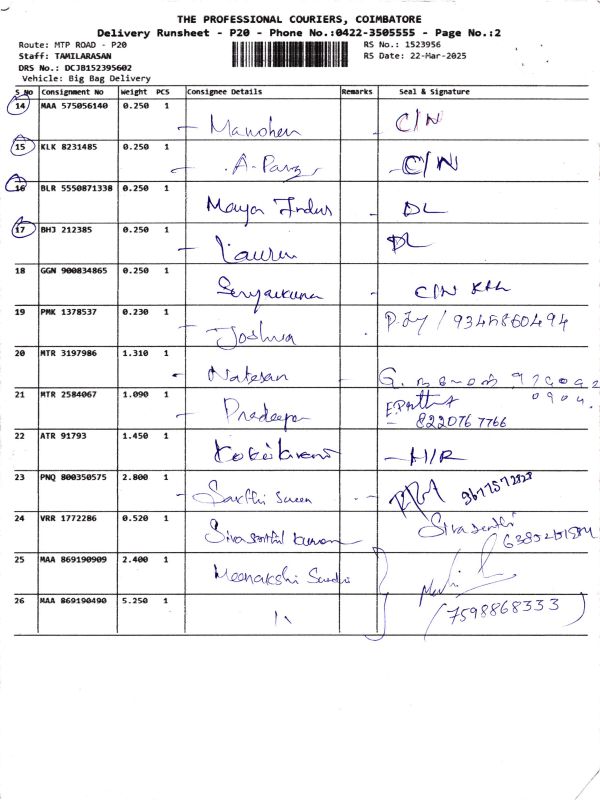 THE PROFESSIONAL COURIERS, COIMBATORE
Delivery Runsheet - P20 - Phone No.:0422-3505555 - Page No.:2
Route: MTP ROAD - P20 RS No.: 1523956
Staff: TAMILARASAN RS Date: 22-Mar-2025
DRS No.: DCJB152395602
Vehicle: Big Bag Delivery
S No Consignment No Weight PCS Consignee Details Remarks Seal & Signature
14 MAA 575056140 0.250 1
C/N
15 KLK 8231485 0.250 1
C/N
16 BLR 5550871338 0.250 1
DL
17 BHJ 212385 0.250 1
DL
18 GGN 900834865 0.250 1
C/N
19 PMK 1378537 0.230 1
Joshua P.Jy / 9345860494
20 MTR 3197986 1.310 1
Natesan G.
21 MTR 2584067 1.090 1
Pradeepa 8220767766
22 ATR 91793 1.450 1
H/R
23 PNQ 800350575 2.800 1
Sakthi 9677572828
24 VRR 1772286 0.520 1
Siva senthil kumaran Siva senthi
25 MAA 869190909 2.400 1
Meenakshi
26 MAA 869190490 5.250 1
(7598868333)